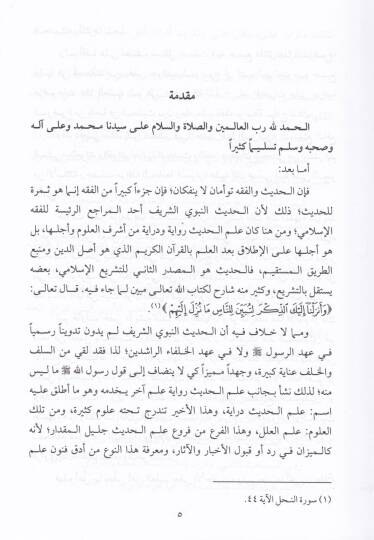 مقدمة
الحمد لله رب العالمين والصلاة والسلام على سيدنا محمد وعلى آله
وصحبه وسلم تسليماً كثيراً
أما بعد:
فإن الحديث والفقه توأمان لا ينفكان؛ فإن جزءاً كبيراً من الفقه إنما هو ثمرة
للحديث؛ ذلك لأن الحديث النبوي الشريف أحد المراجع الرئيسة للفقه
الإسلامي؛ ومن هنا كان علم الحديث رواية ودراية من أشرف العلوم وأجلها، بل
هو أجلها على الإطلاق بعد العلم بالقرآن الكريم الذي هو أصل الدين ومنبع
الطريق المستقيم، فالحديث هو المصدر الثاني للتشريع الإسلامي، بعضه
يستقل بالتشريع، وكثير منه شارح لكتاب الله تعالى مبين لما جاء فيه. قال تعالى:
﴿وَأَنزَلْنَا إِلَيْكَ ٱلذِّكْرَ لِتُبَيِّنَ لِلنَّاسِ مَا نُزِّلَ إِلَيْهِمْ﴾(١).
ومما لا خلاف فيه أن الحديث النبوي الشريف لم يدون تدويناً رسمياً
في عهد الرسول ﷺ ولا في عهد الخلفاء الراشدين؛ لذا فقد لقي من السلف
والخلف عناية كبيرة، وجهداً مميزاً كي لا ينضاف إلى قول رسول الله ﷺ ما ليس
منه؛ لذلك نشأ بجانب علم الحديث رواية علم آخر يخدمه وهو ما أطلق عليه
اسم: علم الحديث دراية، وهذا الأخير تندرج تحته علوم كثيرة، ومن تلك
العلوم: علم العلل، وهذا الفرع من فروع علم الحديث جليل المقدار؛ لأنه
كالميزان في رد أو قبول الأخبار والآثار، ومعرفة هذا النوع من أدق فنون علم
(١) سورة النحل الآية ٤٤.
٥